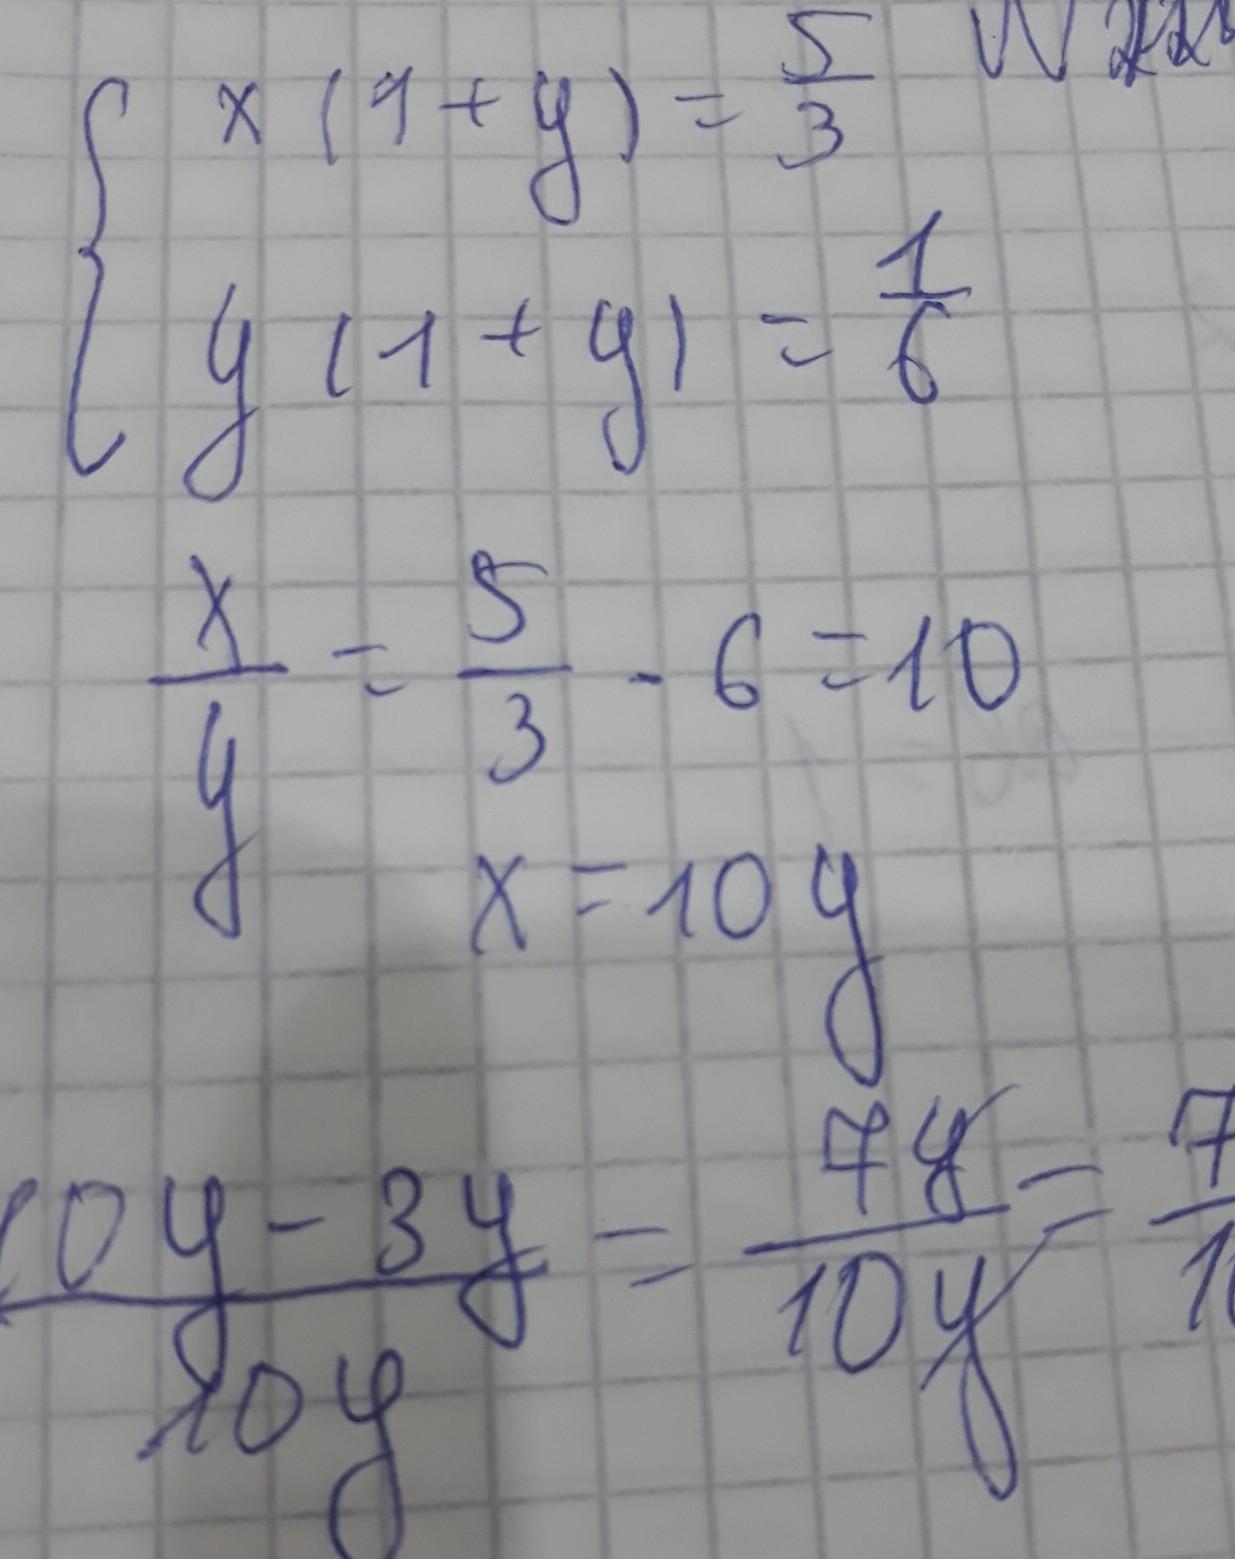 x (1 + y) = 5/3
y (1 + y) = 1/6
x/y = 5/3 · 6 = 10
x = 10 y
(10y - 3y)/10y = 7y/10y = 7/10